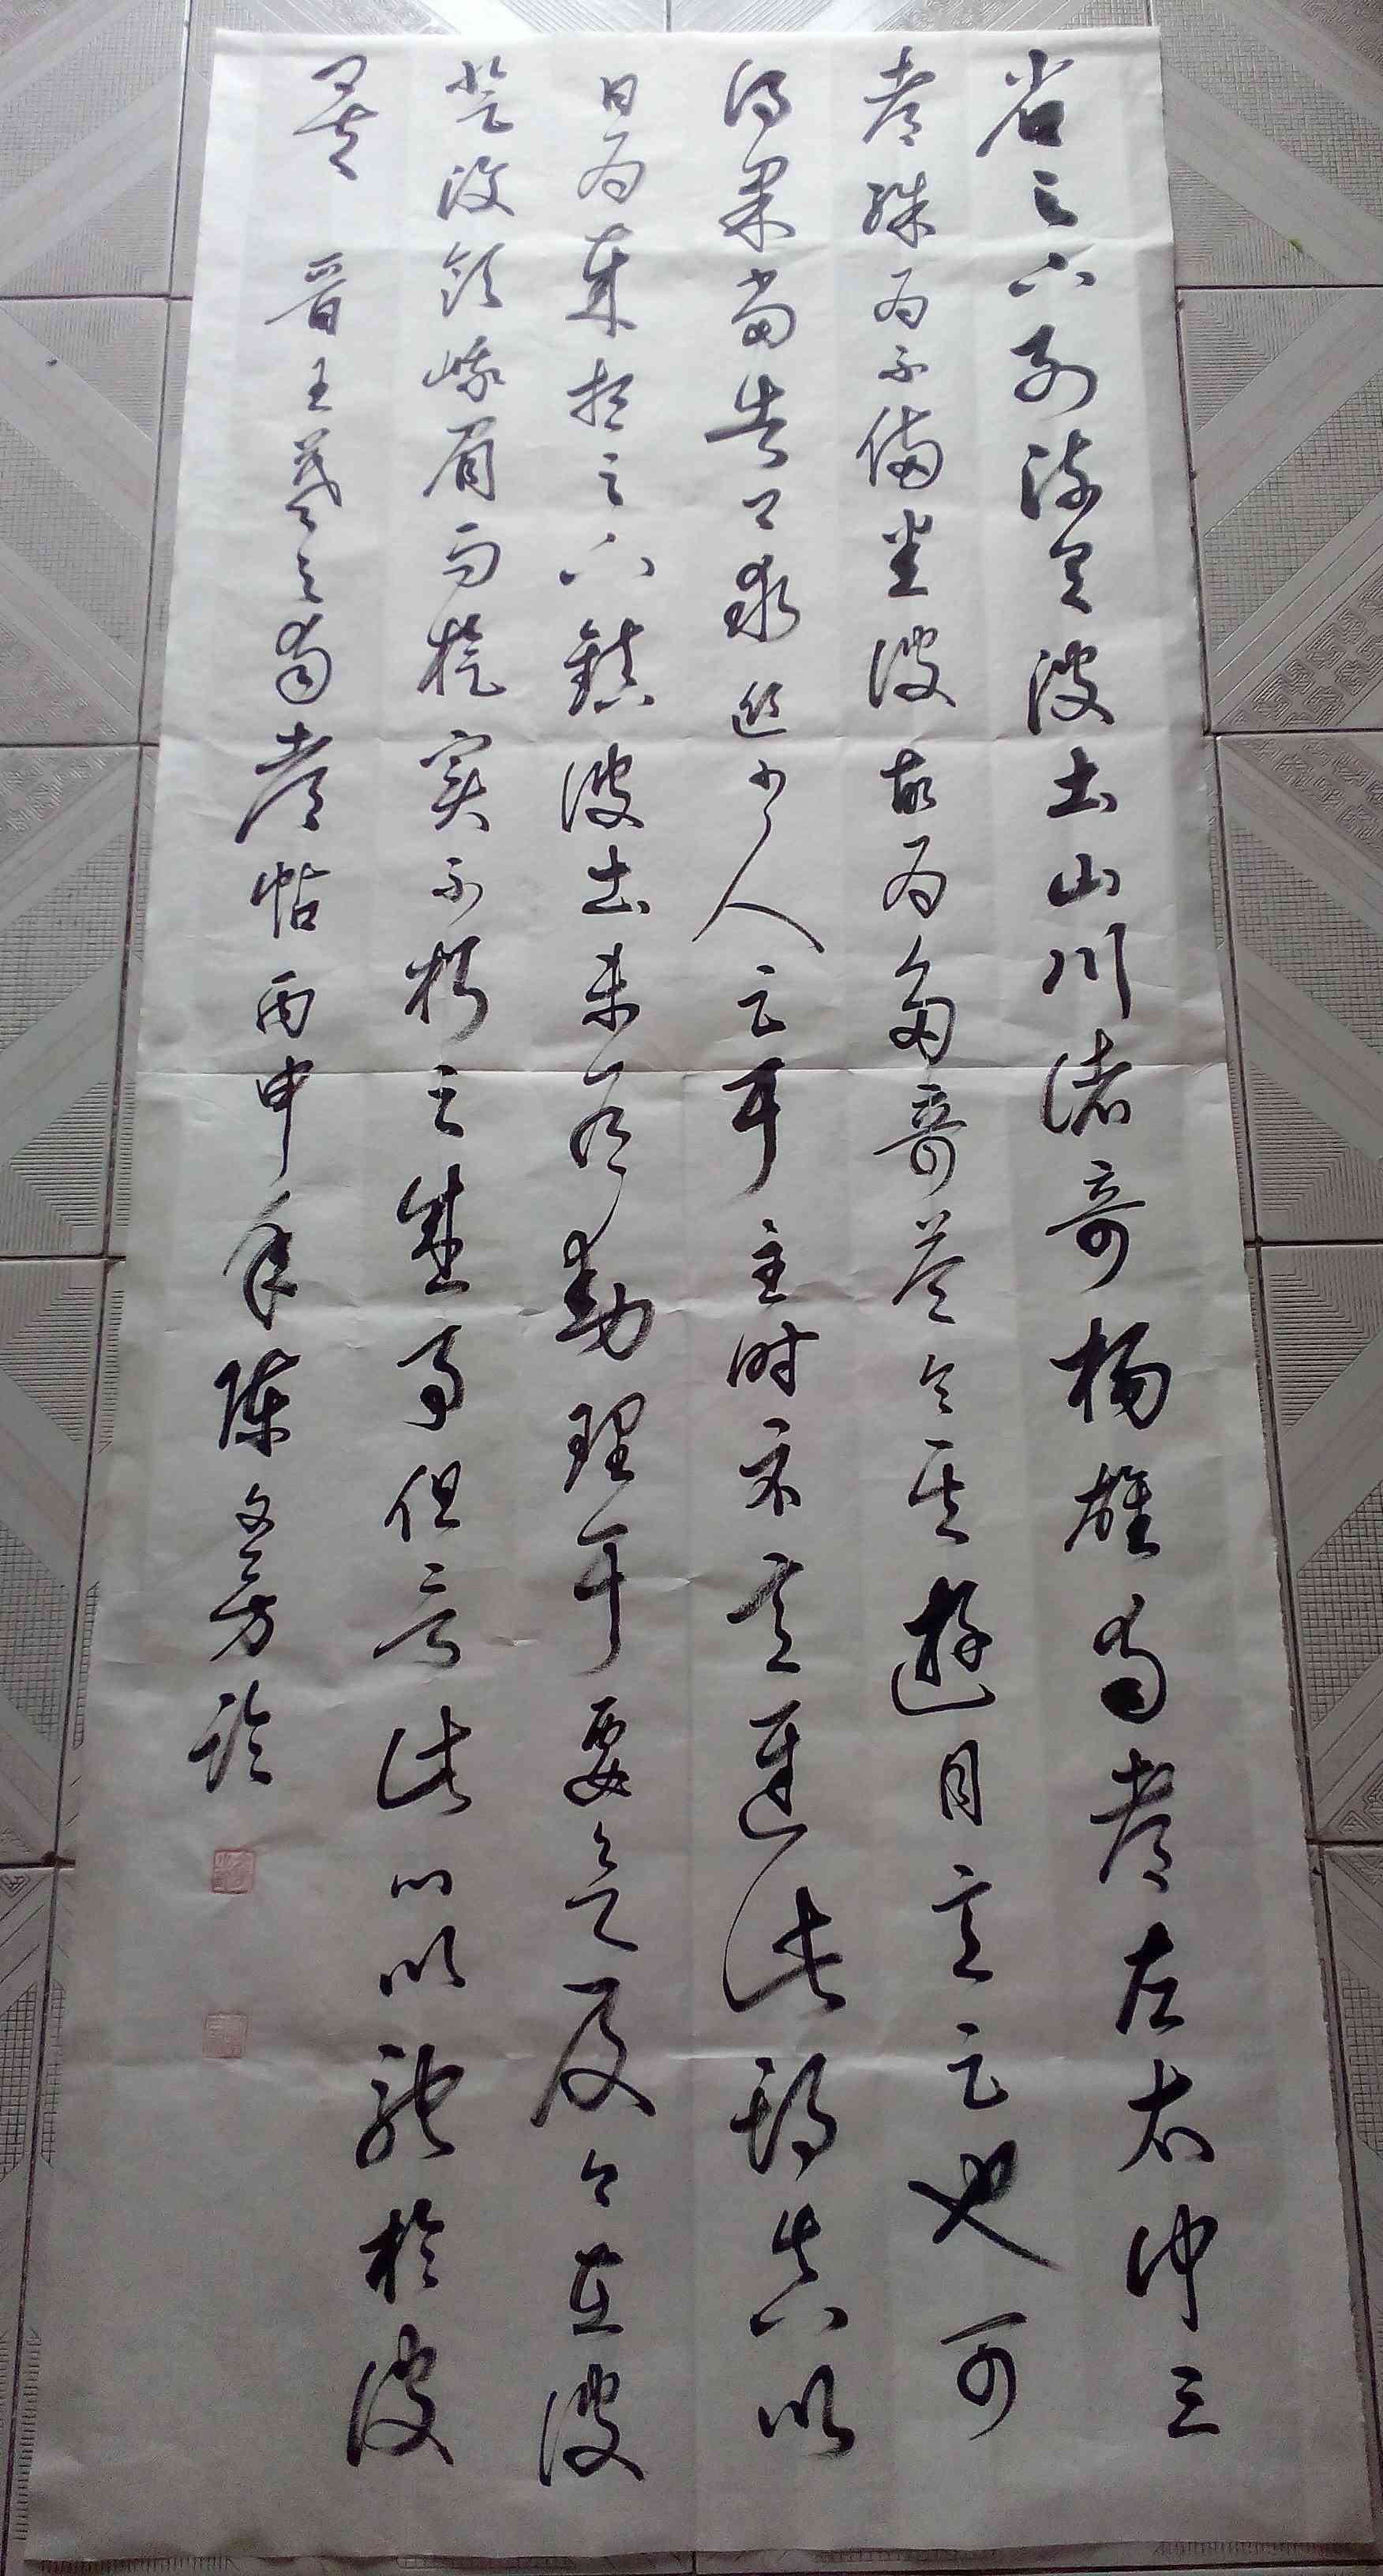 省足下别疏具彼土山川诸奇杨雄蜀都左太冲三
都殊为不備悉彼故为多奇益令其遊目意足也可
得果当告卿求迎少人足耳至时示意迟此期真以
日为歲想足下镇彼土未有動理耳要欲及卿在彼
登汶领峨眉而旋实不朽之盛事但言此心以驰於彼
矣 晋王羲之蜀都帖丙申年陈文芳临